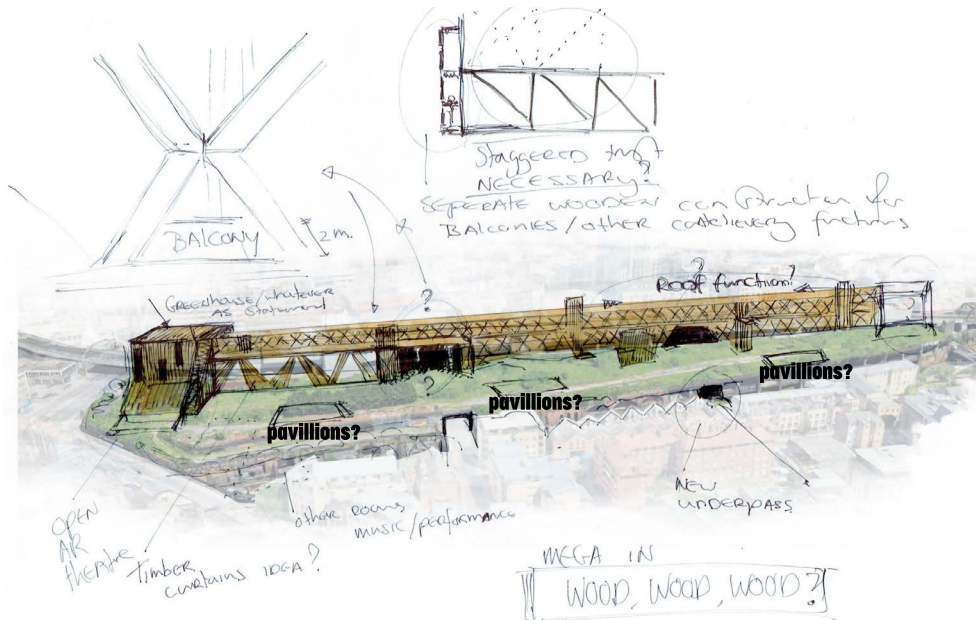 Staggered truss
NECESSARY?
SEPERATE WOODEN construction for
BALCONIES / other functions
BALCONY
2m.
GREENHOUSE/whatever
AS Statement
?
?
ROOF function?
?
?
pavillions?
pavillions?
pavillions?
OPEN
AIR
theatre
Timber
curtains IDEA?
other rooms
music/performance
NEW
UNDERPASS
MEGA IN
WOOD, WOOD, WOOD?